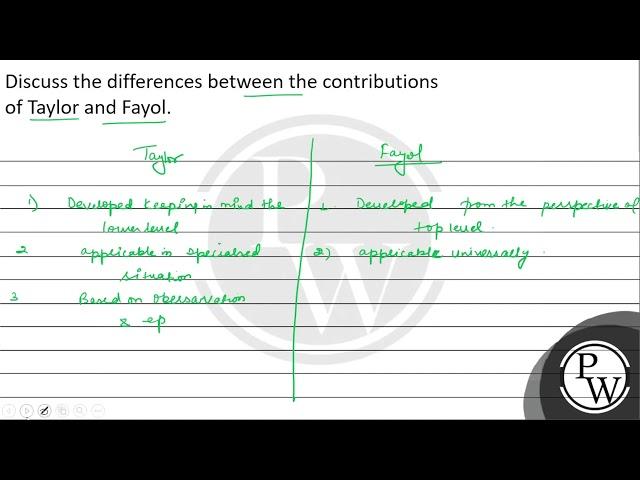 Discuss the differences between the contributions
of Taylor and Fayol.
Taylor
Fayol
1) Developed keeping in mind the
lower level
1. Developed from the perspective of
top level.
2 applicable in specialised
situation
2) applicable universally.
3 Based on Observation
& ep
P
W
P
W